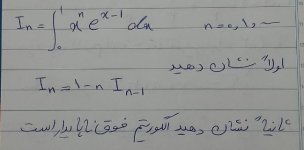 Iₙ = ∫₀¹ xⁿ eˣ⁻¹ dx    n=0,1,...
اولاً نشان دهید
Iₙ = 1-n Iₙ₋₁
ثانیاً نشان دهید الگوریتم فوق ناپایدار است